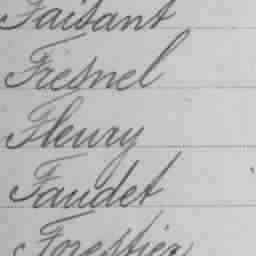 Faisant
Fresnel
Fleury
Faudet
Forestier